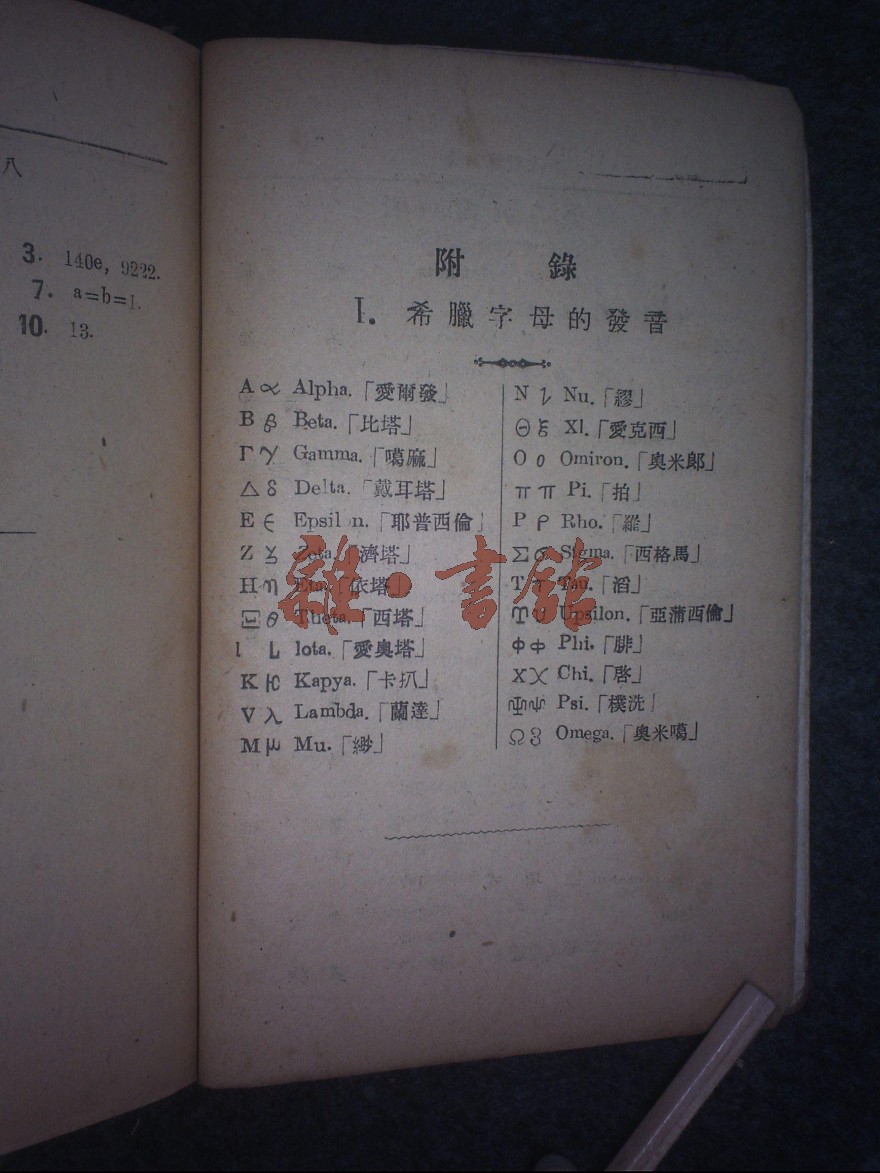 八
3. 140e, 9222.
7. a=b=1.
10. 13.
附 錄
I. 希臘字母的發音
A α Alpha.「愛爾發」
B β Beta.「比塔」
Γ γ Gamma.「噶麻」
Δ δ Delta.「戴耳塔」
E ϵ Epsilon.「耶普西倫」
Z ζ Zeta.「濟塔」
H η Eta.「依塔」
Ξ θ Theta.「西塔」
I ι Iota.「愛奥塔」
K κ Kapya.「卡扒」
V λ Lambda.「蘭達」
M μ Mu.「緲」
N ν Nu.「繆」
Θ ξ Xl.「愛克西」
O o Omiron.「奥米郎」
π π Pi.「拍」
P ρ Rho.「羅」
Σ σ Sigma.「西格馬」
T τ Tau.「滔」
ϒ υ Upsilon.「亞蒲西倫」
ф ф Phi.「腓」
X χ Chi.「啓」
Ψ ψ Psi.「樸洗」
Ω ω Omega.「奥米噶」
雜·書館